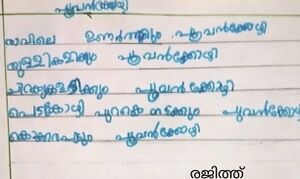 പൂവൻക്കോഴി
രാവിലെ ഉണർത്തും പൂവൻക്കോഴി
തുള്ളികളിക്കും പൂവൻക്കോഴി
ചിറകുകളടിക്കും പൂവൻക്കോഴി
പെടക്കോഴി പുറകെ നടക്കും പൂവൻക്കോഴി
കൊക്കരപാടും പൂവൻക്കോഴി
രജിത്ത്